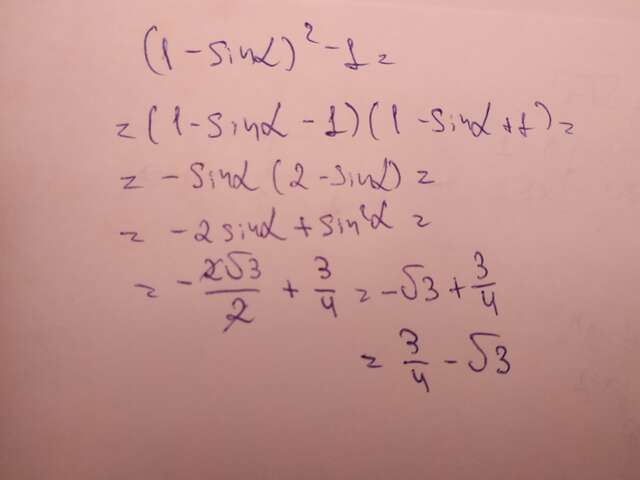 (1 - sinα)² - 1 =
= (1 - sinα - 1)(1 - sinα + 1) =
= - sinα (2 - sinα) =
= - 2 sinα + sin²α =
= - 2√3/2 + 3/4 = - √3 + 3/4
= 3/4 - √3